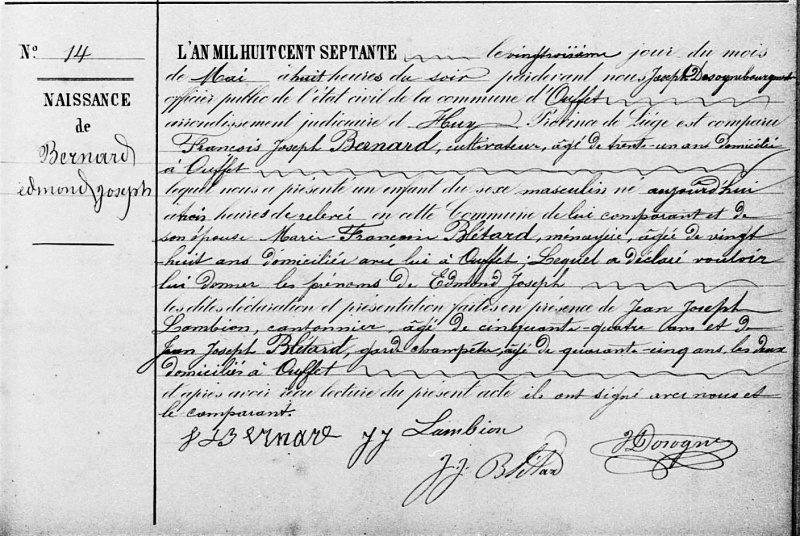 N° 14
NAISSANCE
de
Bernard
edmond Joseph
L'AN MIL HUIT CENT SEPTANTE le vingtroisième jour du mois
de Mai à huit heures du soir pardevant nous Joseph
officier public de l'état civil de la commune d'Ouffet
arrondissement judiciaire d Huy Province de Liége est comparu
François Joseph Bernard, cultivateur, âgé de trente-un ans domicilié
à Ouffet
lequel nous a présenté un enfant du sexe masculin né aujourd'hui
à trois heures de relevée en cette Commune de lui comparant et de
son épouse Marie Françoise Blétard, ménagère, âgée de vingt
huit ans domiciliée avec lui à Ouffet; Lequel a déclaré vouloir
lui donner les prénoms de Edmond Joseph
les dites déclaration et présentation faites en présence de Jean Joseph
Lambion, cantonnier, âgé de cinquante-quatre ans et de
Jean Joseph Blétard, garde champêtre, âgé de quarante-cinq ans, les deux
domiciliés à Ouffet
et après avoir reçu lecture du présent acte ils ont signé avec nous et
le comparant.
f J Bernard JJ Lambion
J. Dosogne
J. J. Blétard